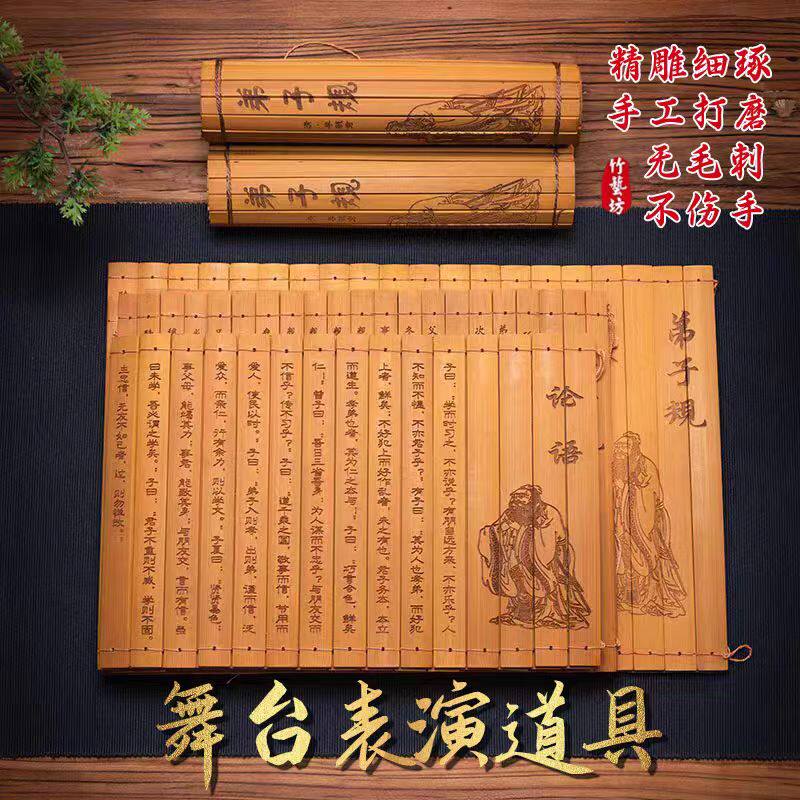 精雕细琢
手工打磨
无毛刺
不伤手
竹艺坊
弟子規
弟子規
弟子規
论语
子曰："学而时习之，不亦说乎？有朋自远方来，不亦乐乎？人
不知而不愠，不亦君子乎？"有子曰："其为人也孝弟，而好犯
上者，鲜矣；不好犯上而好作乱者，未之有也。君子务本，本立
而道生。孝弟也者，其为仁之本与！"子曰："巧言令色，鲜矣
仁！"曾子曰："吾日三省吾身：为人谋而不忠乎？与朋友交而
不信乎？传不习乎？"子曰："道千乘之国，敬事而信，节用而
爱人，使民以时。"子曰："弟子入则孝，出则弟，谨而信，泛
爱众，而亲仁，行有余力，则以学文。"子夏曰："贤贤易色；
事父母，能竭其力；事君，能致其身；与朋友交，言而有信。虽
曰未学，吾必谓之学矣。"子曰："君子不重则不威，学则不固。
主忠信，无友不如己者，过，则勿惮改。"
舞台表演道具